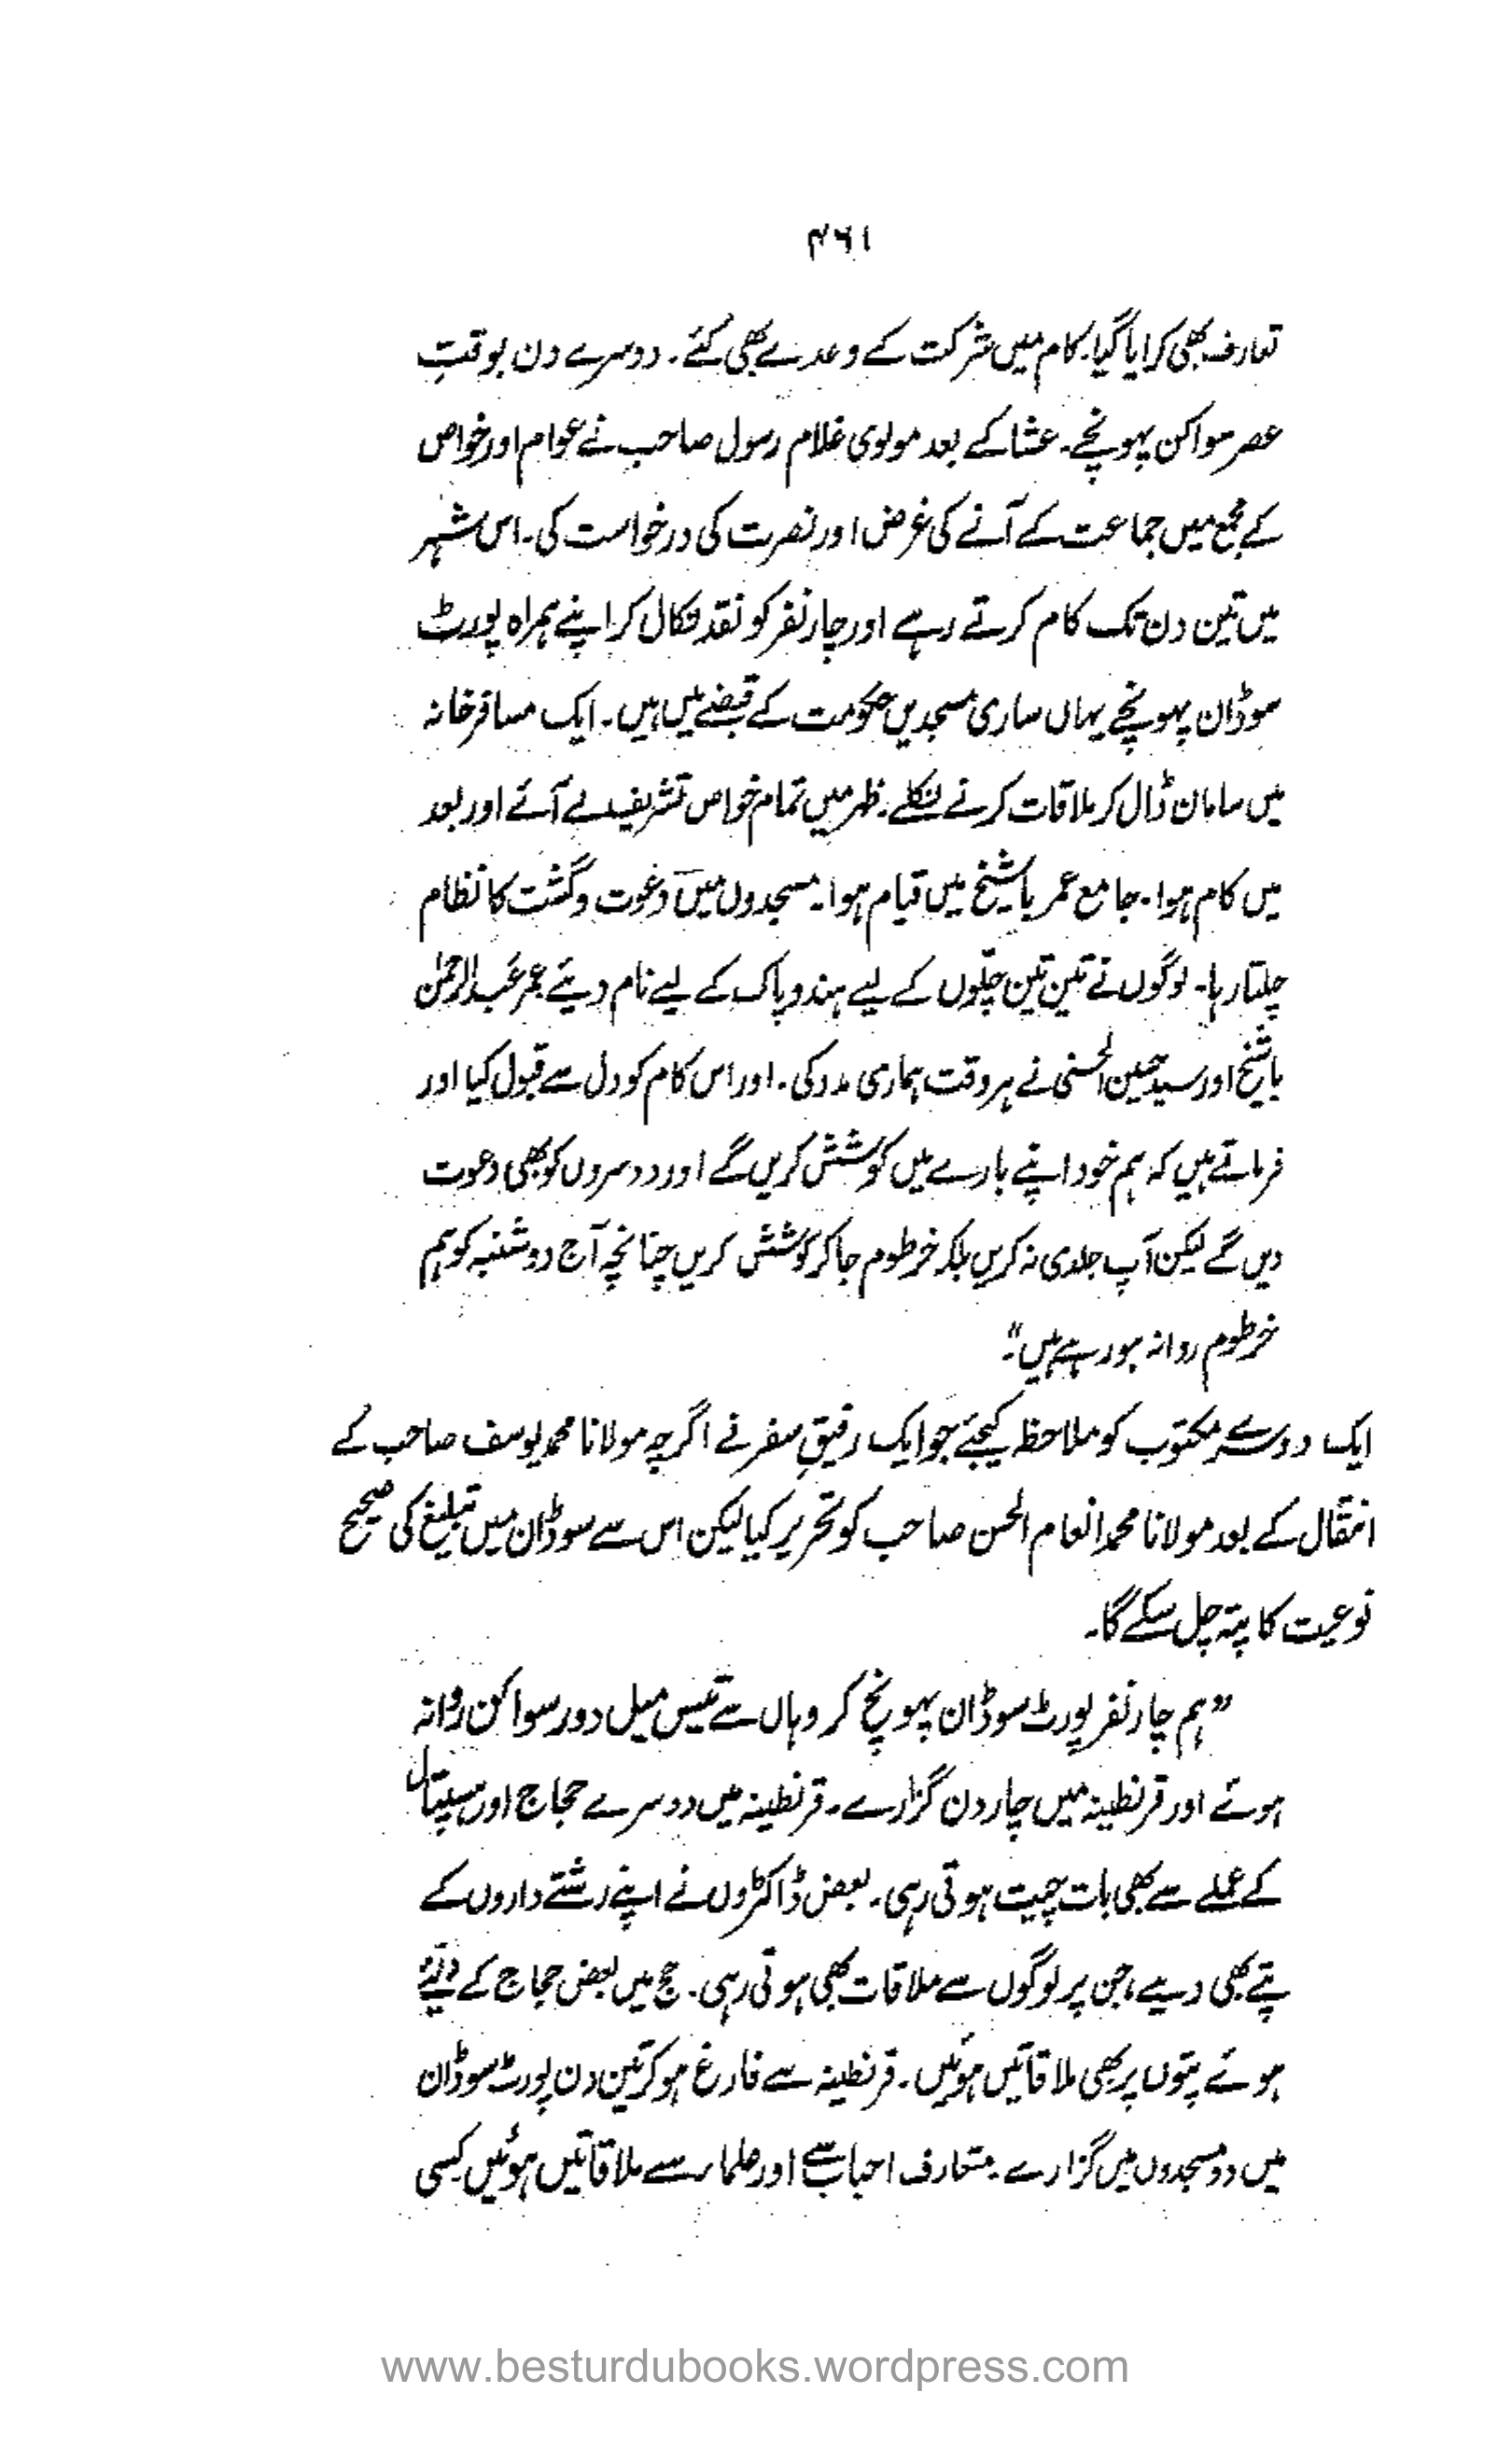 ۴۶۱
تعارف بھی کرایا گیا۔ کام میں شرکت کے وعدے بھی کئے۔ دوسرے دن بوقتِ
عصر سواکن پہونچے۔ عشا کے بعد مولوی غلام رسول صاحب نے عوام اور خواص
کے مجمع میں جماعت کے آنے کی غرض اور نصرت کی درخواست کی۔ اس شہر
میں تین دن تک کام کرتے رہے اور چار نفر کو نقد نکال کر اپنے ہمراہ پورٹ
سوڈان پہونچے یہاں ساری مسجدیں حکومت کے قبضے میں ہیں۔ ایک مسافر خانہ
میں سامان ڈال کر ملاقات کرنے نکلے۔ ظہر میں تمام خواص تشریف لے آئے اور بعد
میں کام ہوا۔ جامع عمر باشیخ میں قیام ہوا۔ مسجدوں میں دعوت و گشت کا نظام
چلتا رہا۔ لوگوں نے تین تین چلّوں کے لیے ہند و پاک کے لیے نام دیئے عمر عبدالرحمٰن
باشیخ اور سید حسین الحسنی نے ہر وقت ہماری مدد کی۔ اور اس کام کو دل سے قبول کیا اور
فرماتے ہیں کہ ہم خود اپنے بارے میں کوشش کریں گے اور دوسروں کو بھی دعوت
دیں گے لیکن آپ جلدی نہ کریں بلکہ خرطوم جا کر کوشش کریں چنانچہ آج دوشنبہ کو ہم
خرطوم روانہ ہو رہے ہیں"۔
ایک دوسرے مکتوب کو ملاحظہ کیجئے جو ایک رفیقِ سفر نے اگرچہ مولانا محمد یوسف صاحب کے
انتقال کے بعد مولانا محمد انعام الحسن صاحب کو تحریر کیا لیکن اس سے سوڈان میں تبلیغ کی صحیح
نوعیت کا پتہ چل سکے گا۔
"ہم چار نفر پورٹ سوڈان پہونچ کر وہاں سے تیس میل دور سواکن روانہ
ہوئے اور قرنطینہ میں چار دن گزارے۔ قرنطینہ میں دوسرے حجاج اور ہسپتال
کے عملے سے بھی بات چیت ہوتی رہی۔ بعض ڈاکٹروں نے اپنے رشتے داروں کے
پتے بھی دیئے، جن پر لوگوں سے ملاقات بھی ہوتی رہی۔ حج میں بعض حجاج کے دیئے
ہوئے پتوں پر بھی ملاقاتیں ہوئیں۔ قرنطینہ سے فارغ ہو کر تین دن پورٹ سوڈان
میں دو مسجدوں میں گزارے۔ متعارف احباب سے اور علماء سے ملاقاتیں ہوئیں کسی
www.besturdubooks.wordpress.com